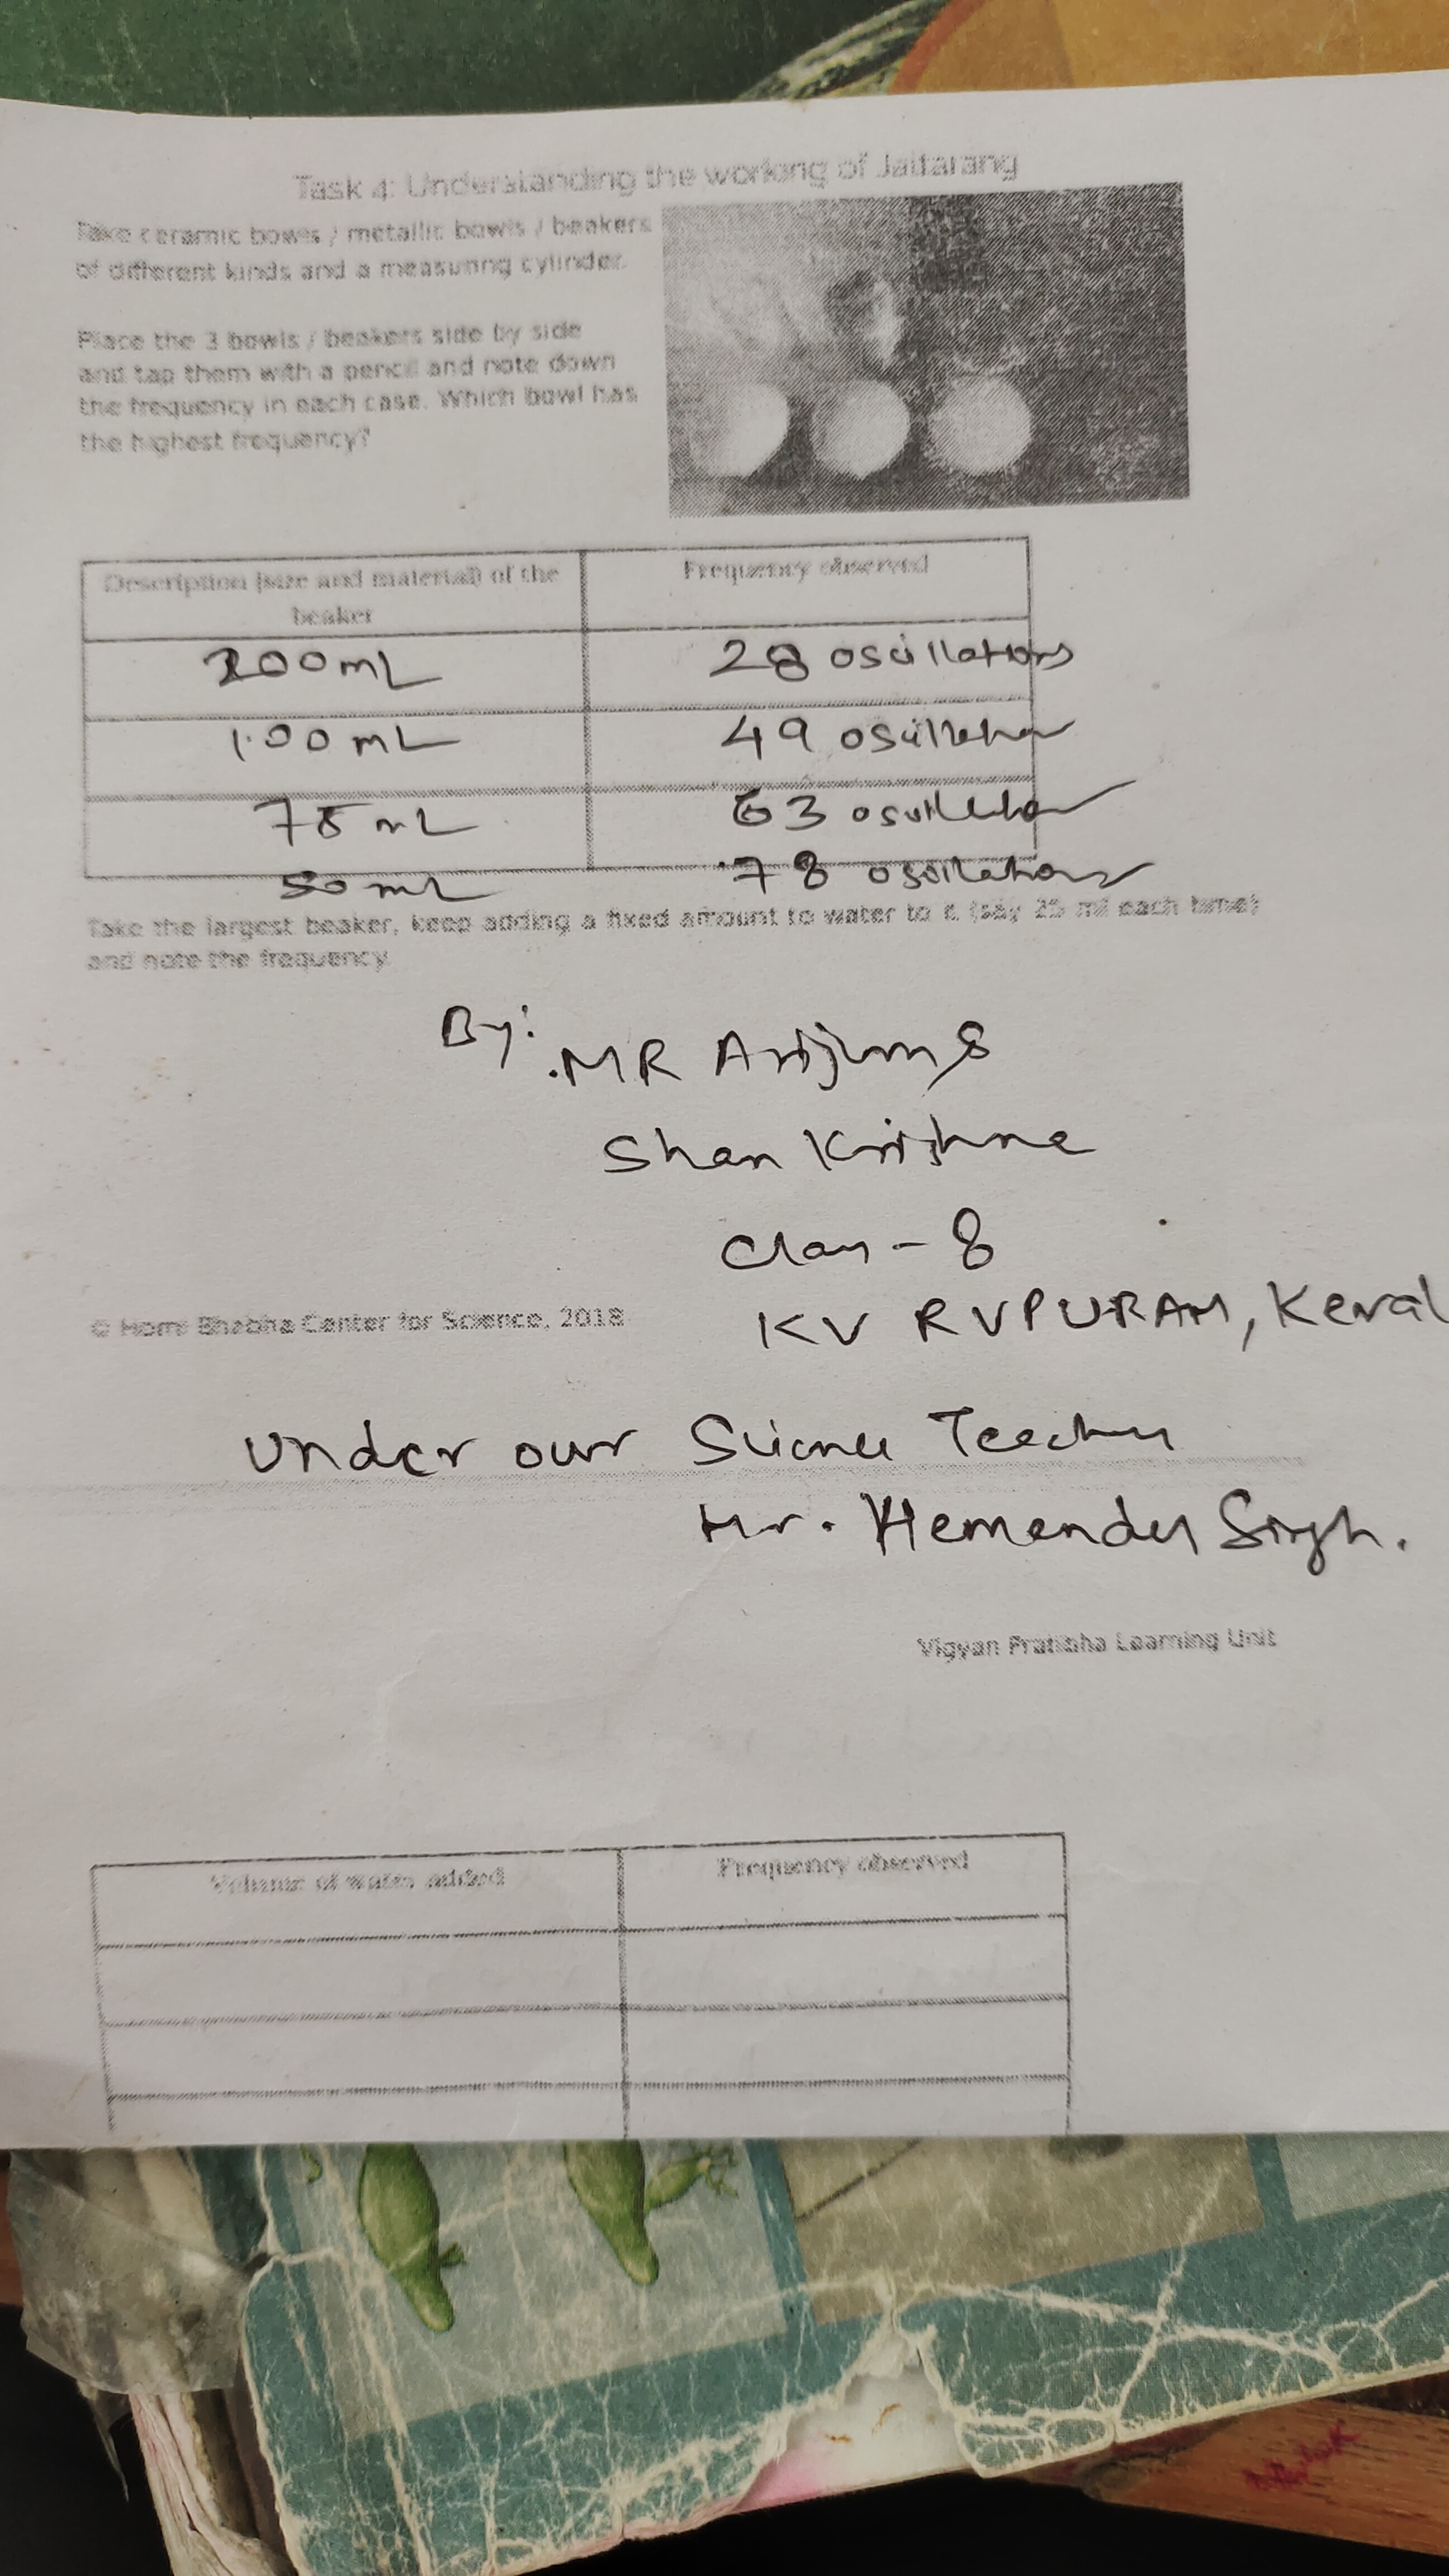 Task 4: Understanding the working of Jaltarang
Take ceramic bowls / metallic bowls / beakers
of different kinds and a measuring cylinder.
Place the 3 bowls / beakers side by side
and tap them with a pencil and note down
the frequency in each case. Which bowl has
the highest frequency?
Description (size and material) of the
beaker
Frequency observed
200 mL 28 oscillations
100 mL 49 oscillation
75 mL 63 oscillation
50 mL 78 oscillations
Take the largest beaker, keep adding a fixed amount to water to it (say 25 ml each time)
and note the frequency
By:
MR
Shan Krishna
Class - 8
© Homi Bhabha Center for Science, 2018
KV RVPURAM, Keral
Under our Science Teacher
Mr. Hemender Singh.
Vigyan Pratibha Learning Unit
Volume of water added Frequency observed